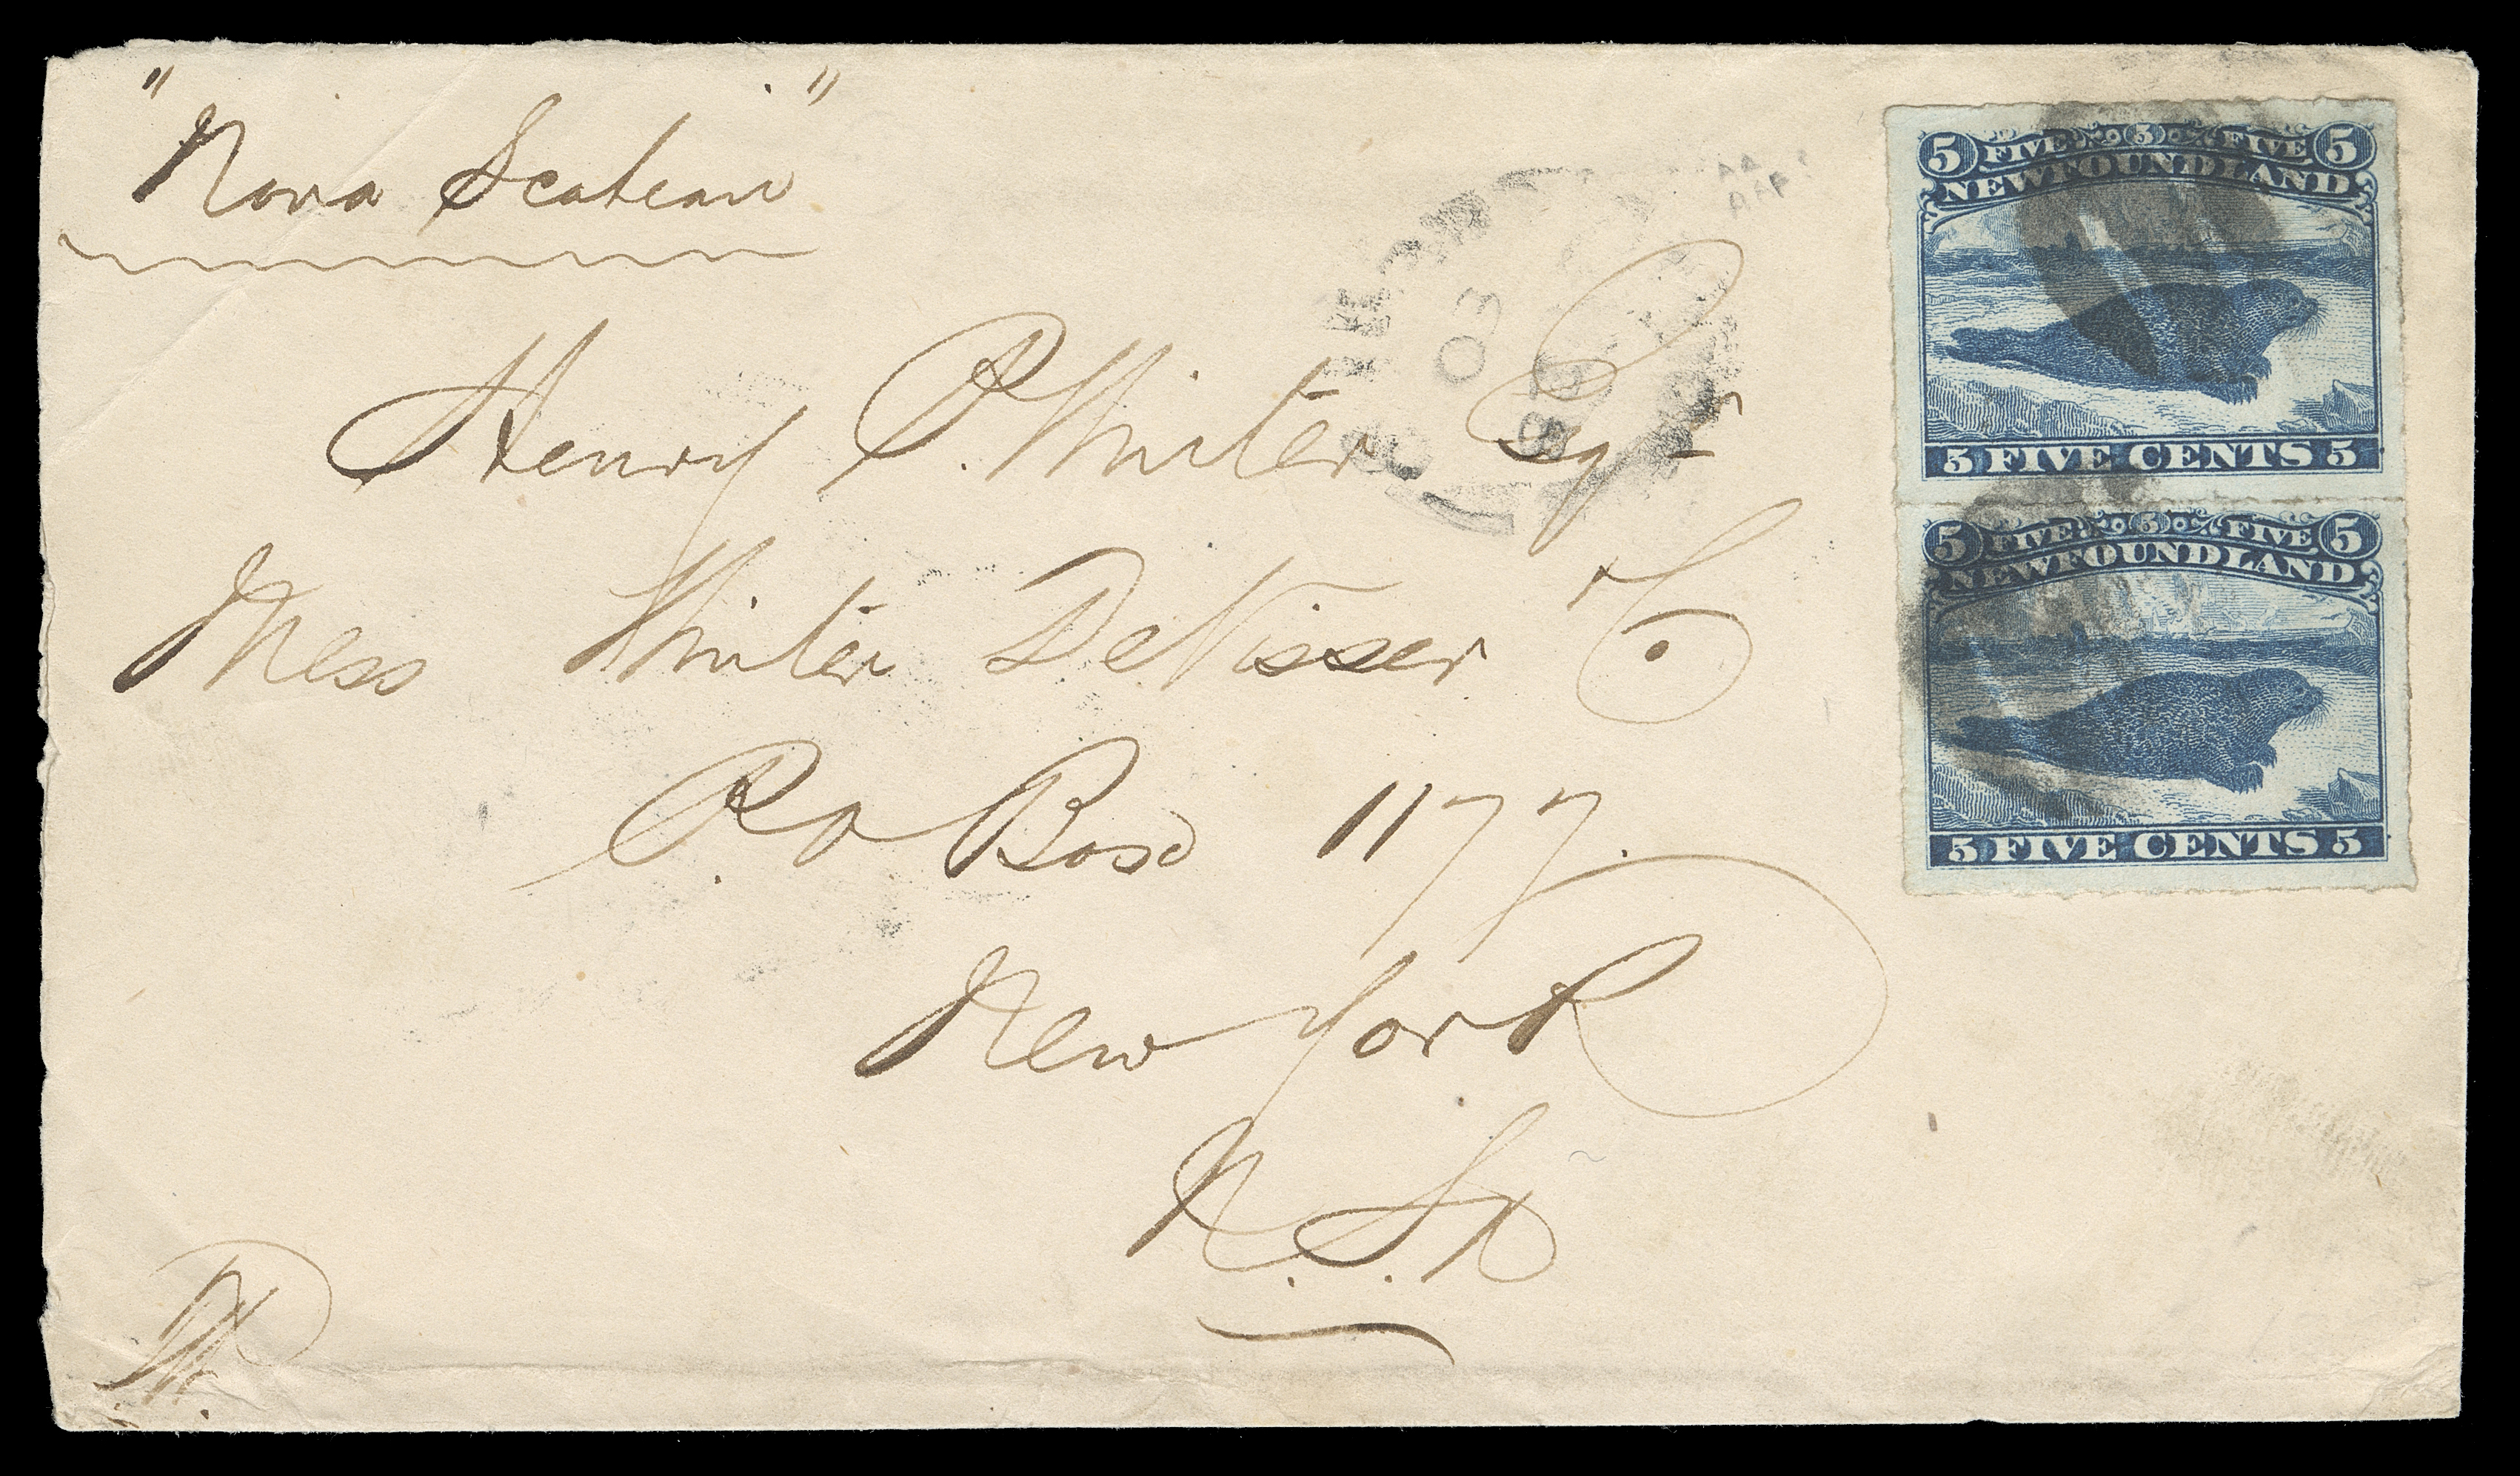 "Nova Scotian"
Henry P. Winter Esqr
Mess Winter DeVisser & Co
P.O Box 1177.
New York
N.S.
5 FIVE 5 FIVE 5
NEWFOUNDLAND
5 FIVE CENTS 5
5 FIVE 5 FIVE 5
NEWFOUNDLAND
5 FIVE CENTS 5